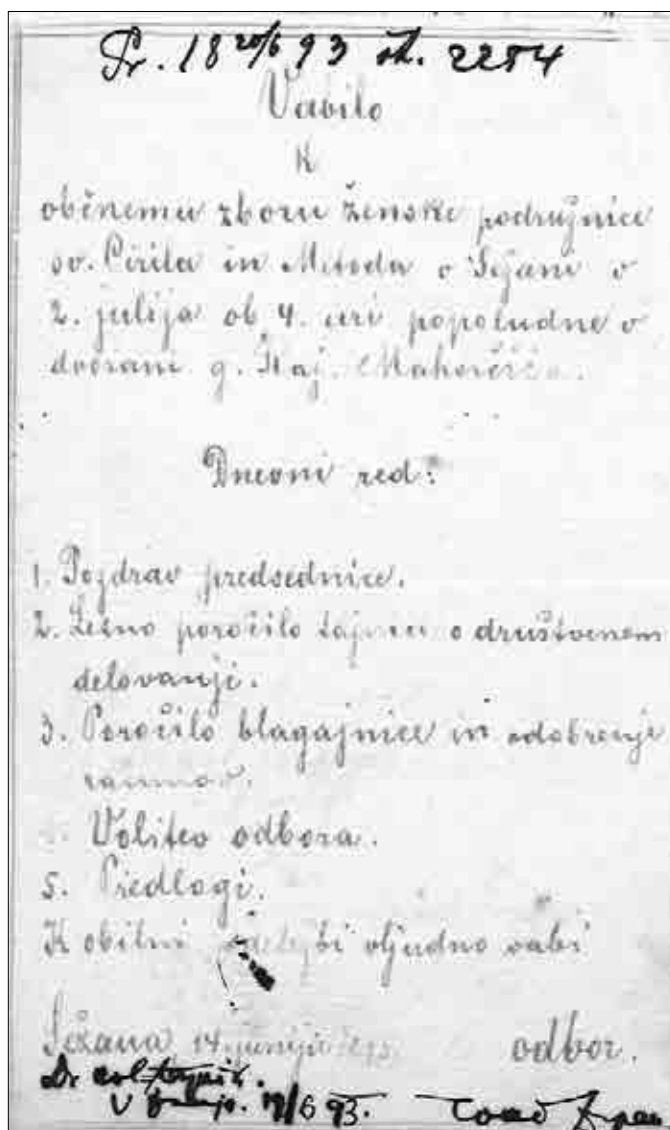 Pr. 18 20/6 93 št. 2254
Vabilo
K
občnemu zboru ženske podružnice
sv. Cirila in Metoda v Sežani v
2. julija ob 4. uri popoludne v
dvorani g. Raj. Mahorčiča.
Dnevni red:
1. Pozdrav predsednice.
2. Letno poročilo tajnice o društvenem
delovanji.
3. Poročilo blagajnice in odobrenje
računov.
Volitev odbora.
5. Predlogi.
K obilni udeležbi vljudno vabi
Sežana 14. junija
odbor.
Dr
V 19/6 93.